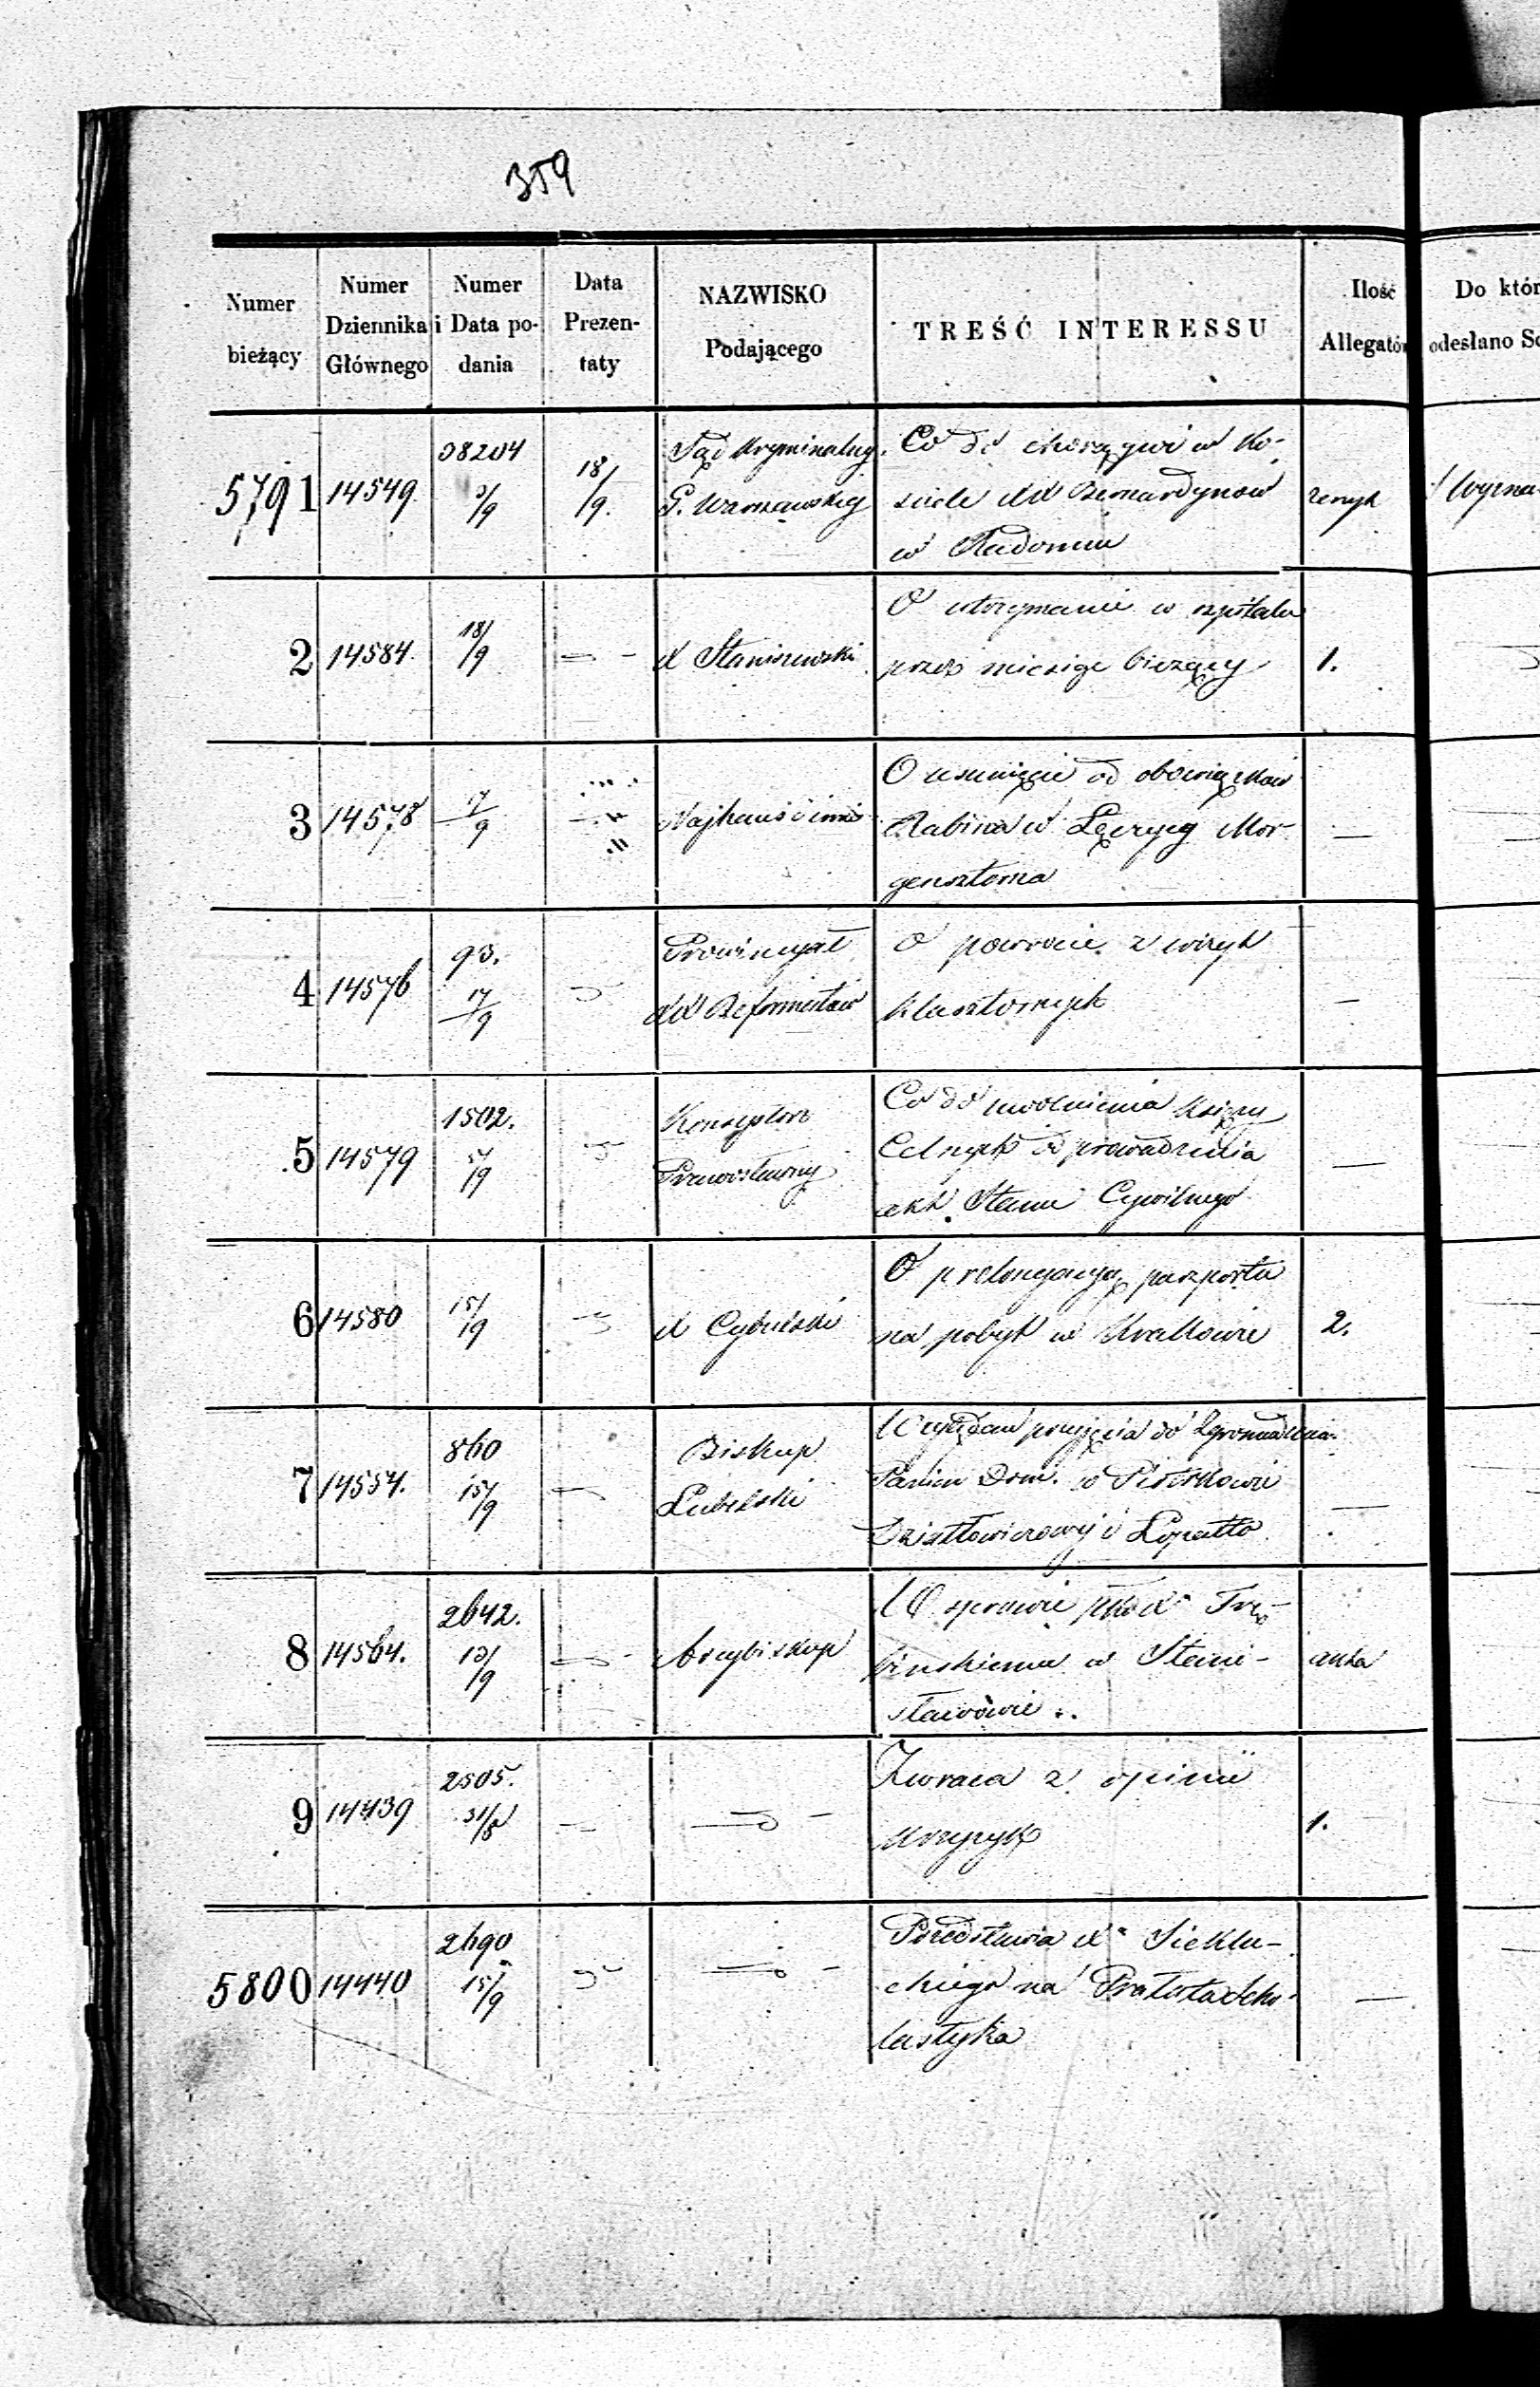 359
Numer bieżący | Numer Dziennika Głównego | Numer i Data podania | Data Prezentaty | NAZWISKO Podającego | TREŚĆ INTERESSU | Ilość Allegatów | Do któr odesłano
5791 | 14549 | 38204 3/9 | 18/9. | Sąd Kryminalny G. Warszawskiej | Co do chorągwi w Ko-
ściele XX Bernardynów
w Radomiu
2 | 14584 | 18/9 | X Staniszewski | O utrzymanie w szpitalu
przez miesiąc bieżący | 1.
3 | 14578 | 17/9 | Najhaus i inni | O usunięcie od obowiązków
Rabina w Łęczycy Mor-
gensterna | —
4 | 14576 | 93. 17/9 | Prowincyał XX Reformatów | O powrocie z wizyt
klasztornych | —
5 | 14579 | 1502. /9 | Konsystorz Prawosławny | Co do uwolnienia księży
od prowadzenia
akt Stanu Cywilnego | —
6 | 14580 | 15/9 | X Cybulski | O prolongacyą paszportu
na pobyt w Krakowie | 2.
7 | 14554. | 860 15/9 | Biskup Lubelski | Względem przyjęcia do Zgromadzenia
Panien Dom. w Piotrkowie
i Łopatto | —
8 | 14564. | 2642. 13/9 | Arcybiskup | W sprawie pko Xu Trę-
bińskiemu w Stani-
sławowie | akta
9 | 14439 | 2505. 31/8 | Zwraca z opinii | 1.
5800 | 14440 | 2690 15/9 | Przedstawia Xa Sieklu-
ckiego na Prałata Scho-
lastyka | —